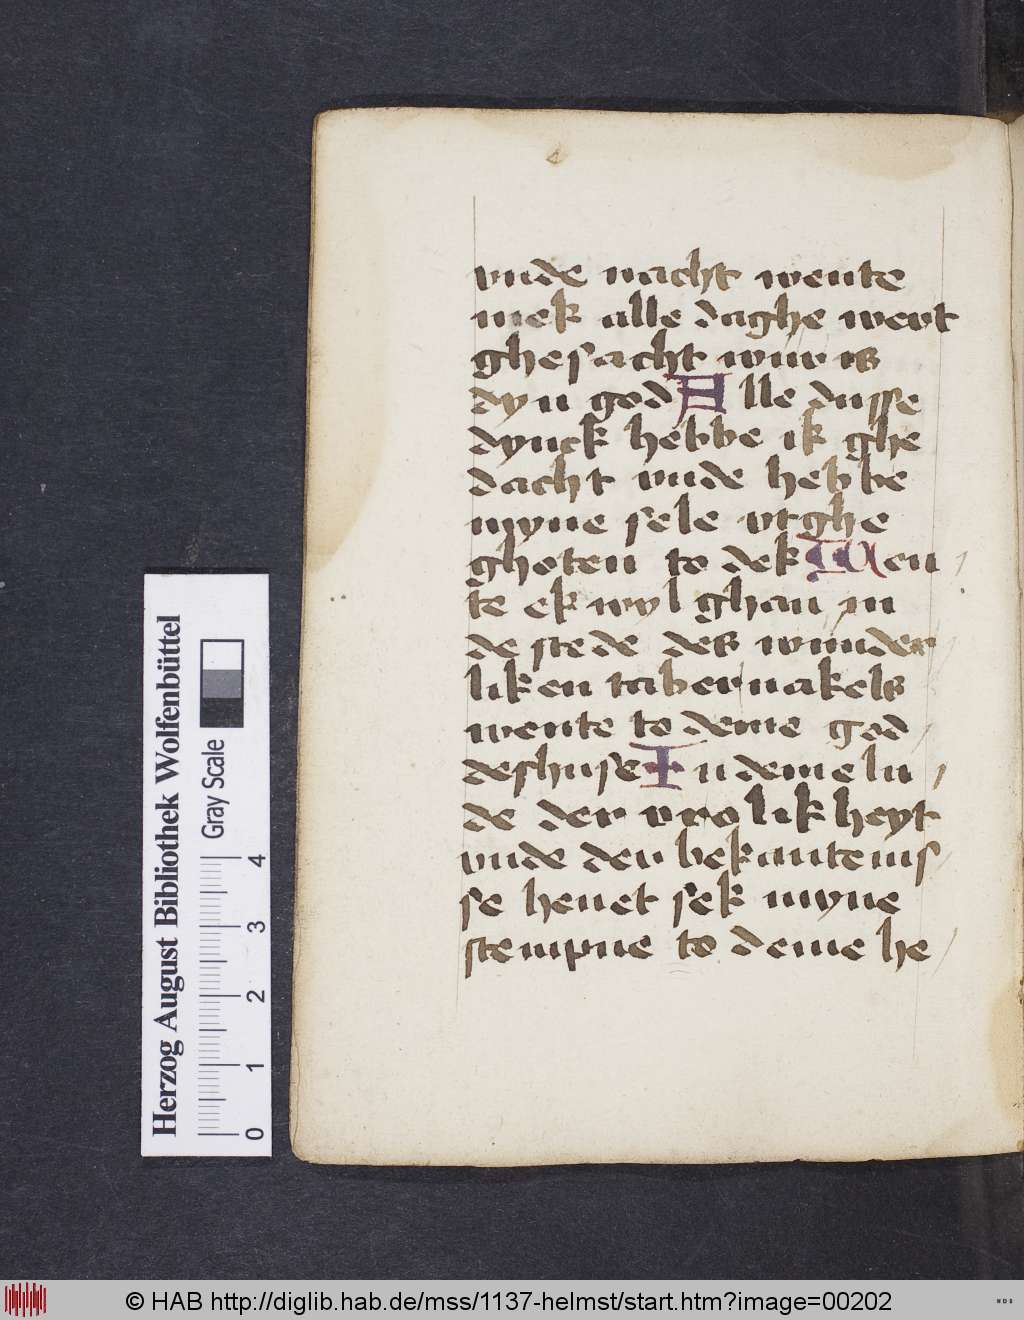 vnde nacht wente
mek alle daghe wert
ghesacht wur is
dyn god Alle dusse
dynck hebbe ik ghe
dacht vnde hebbe
myne sele vtghe
ghoten to dek Wen
te ek wyl ghan in
de stede des wunder
liken tabernakels
wente to deme god
deshuse In deme lu
de der vrolikheyt
vnde der bekantenis
se heuet sek myne
stempne to deme he
Herzog August Bibliothek Wolfenbüttel
Gray Scale
0 1 2 3 4
© HAB http://diglib.hab.de/mss/1137-helmst/start.htm?image=00202